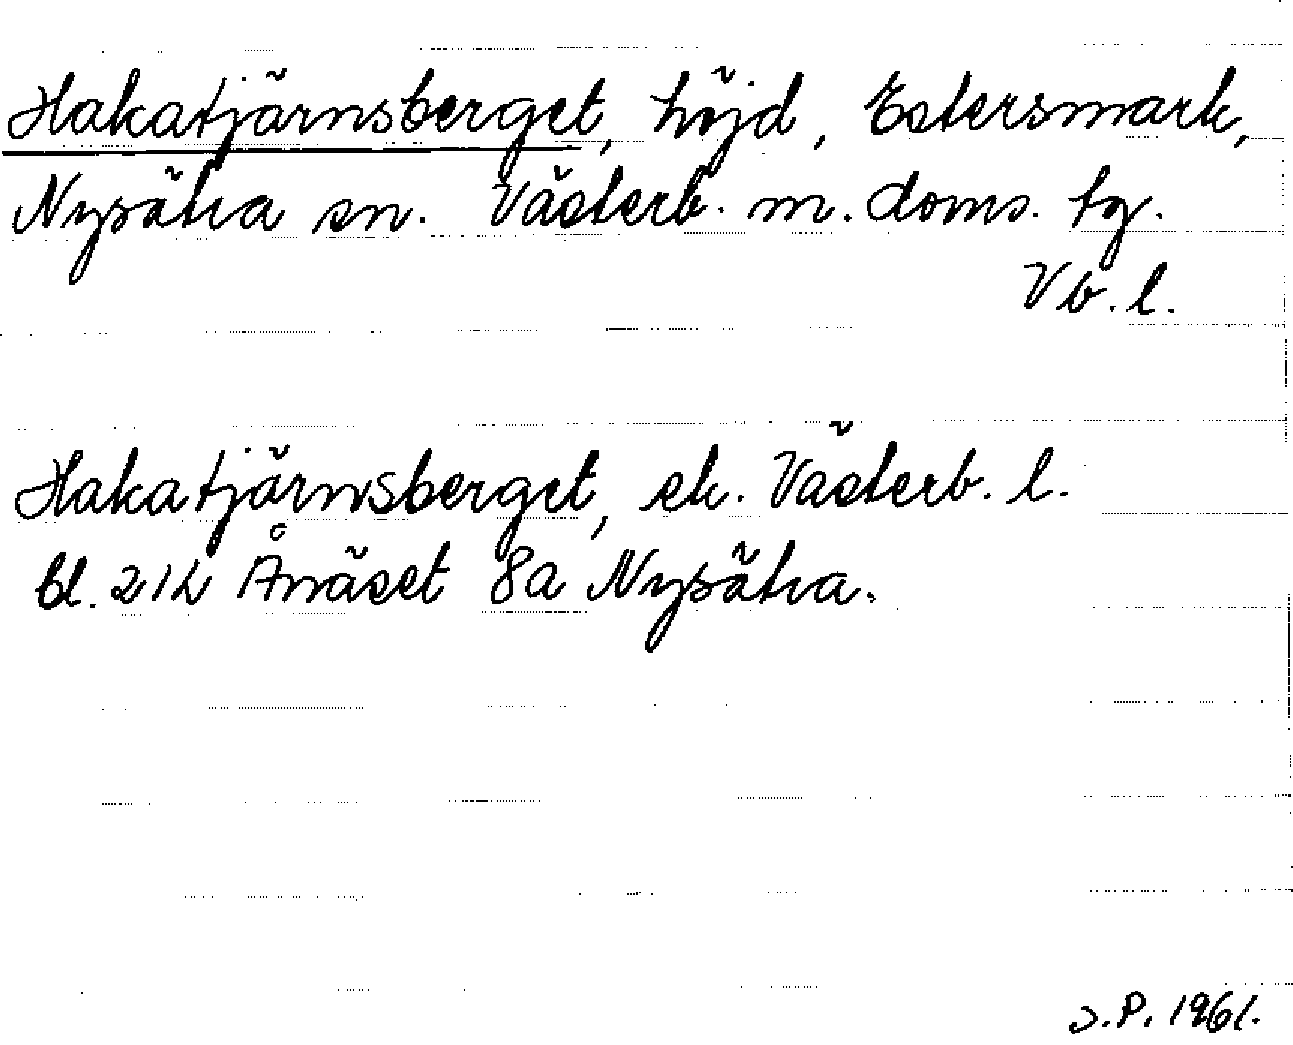 Hakatjärnsberget, höjd, Estersmark,
Nysätra sn. Västerb. m. doms. tg.
Vb. l.
Hakatjärnsberget, ek. Västerb. l.
bl. 21L Ånäset 8a Nysätra.
S.P. 1961.